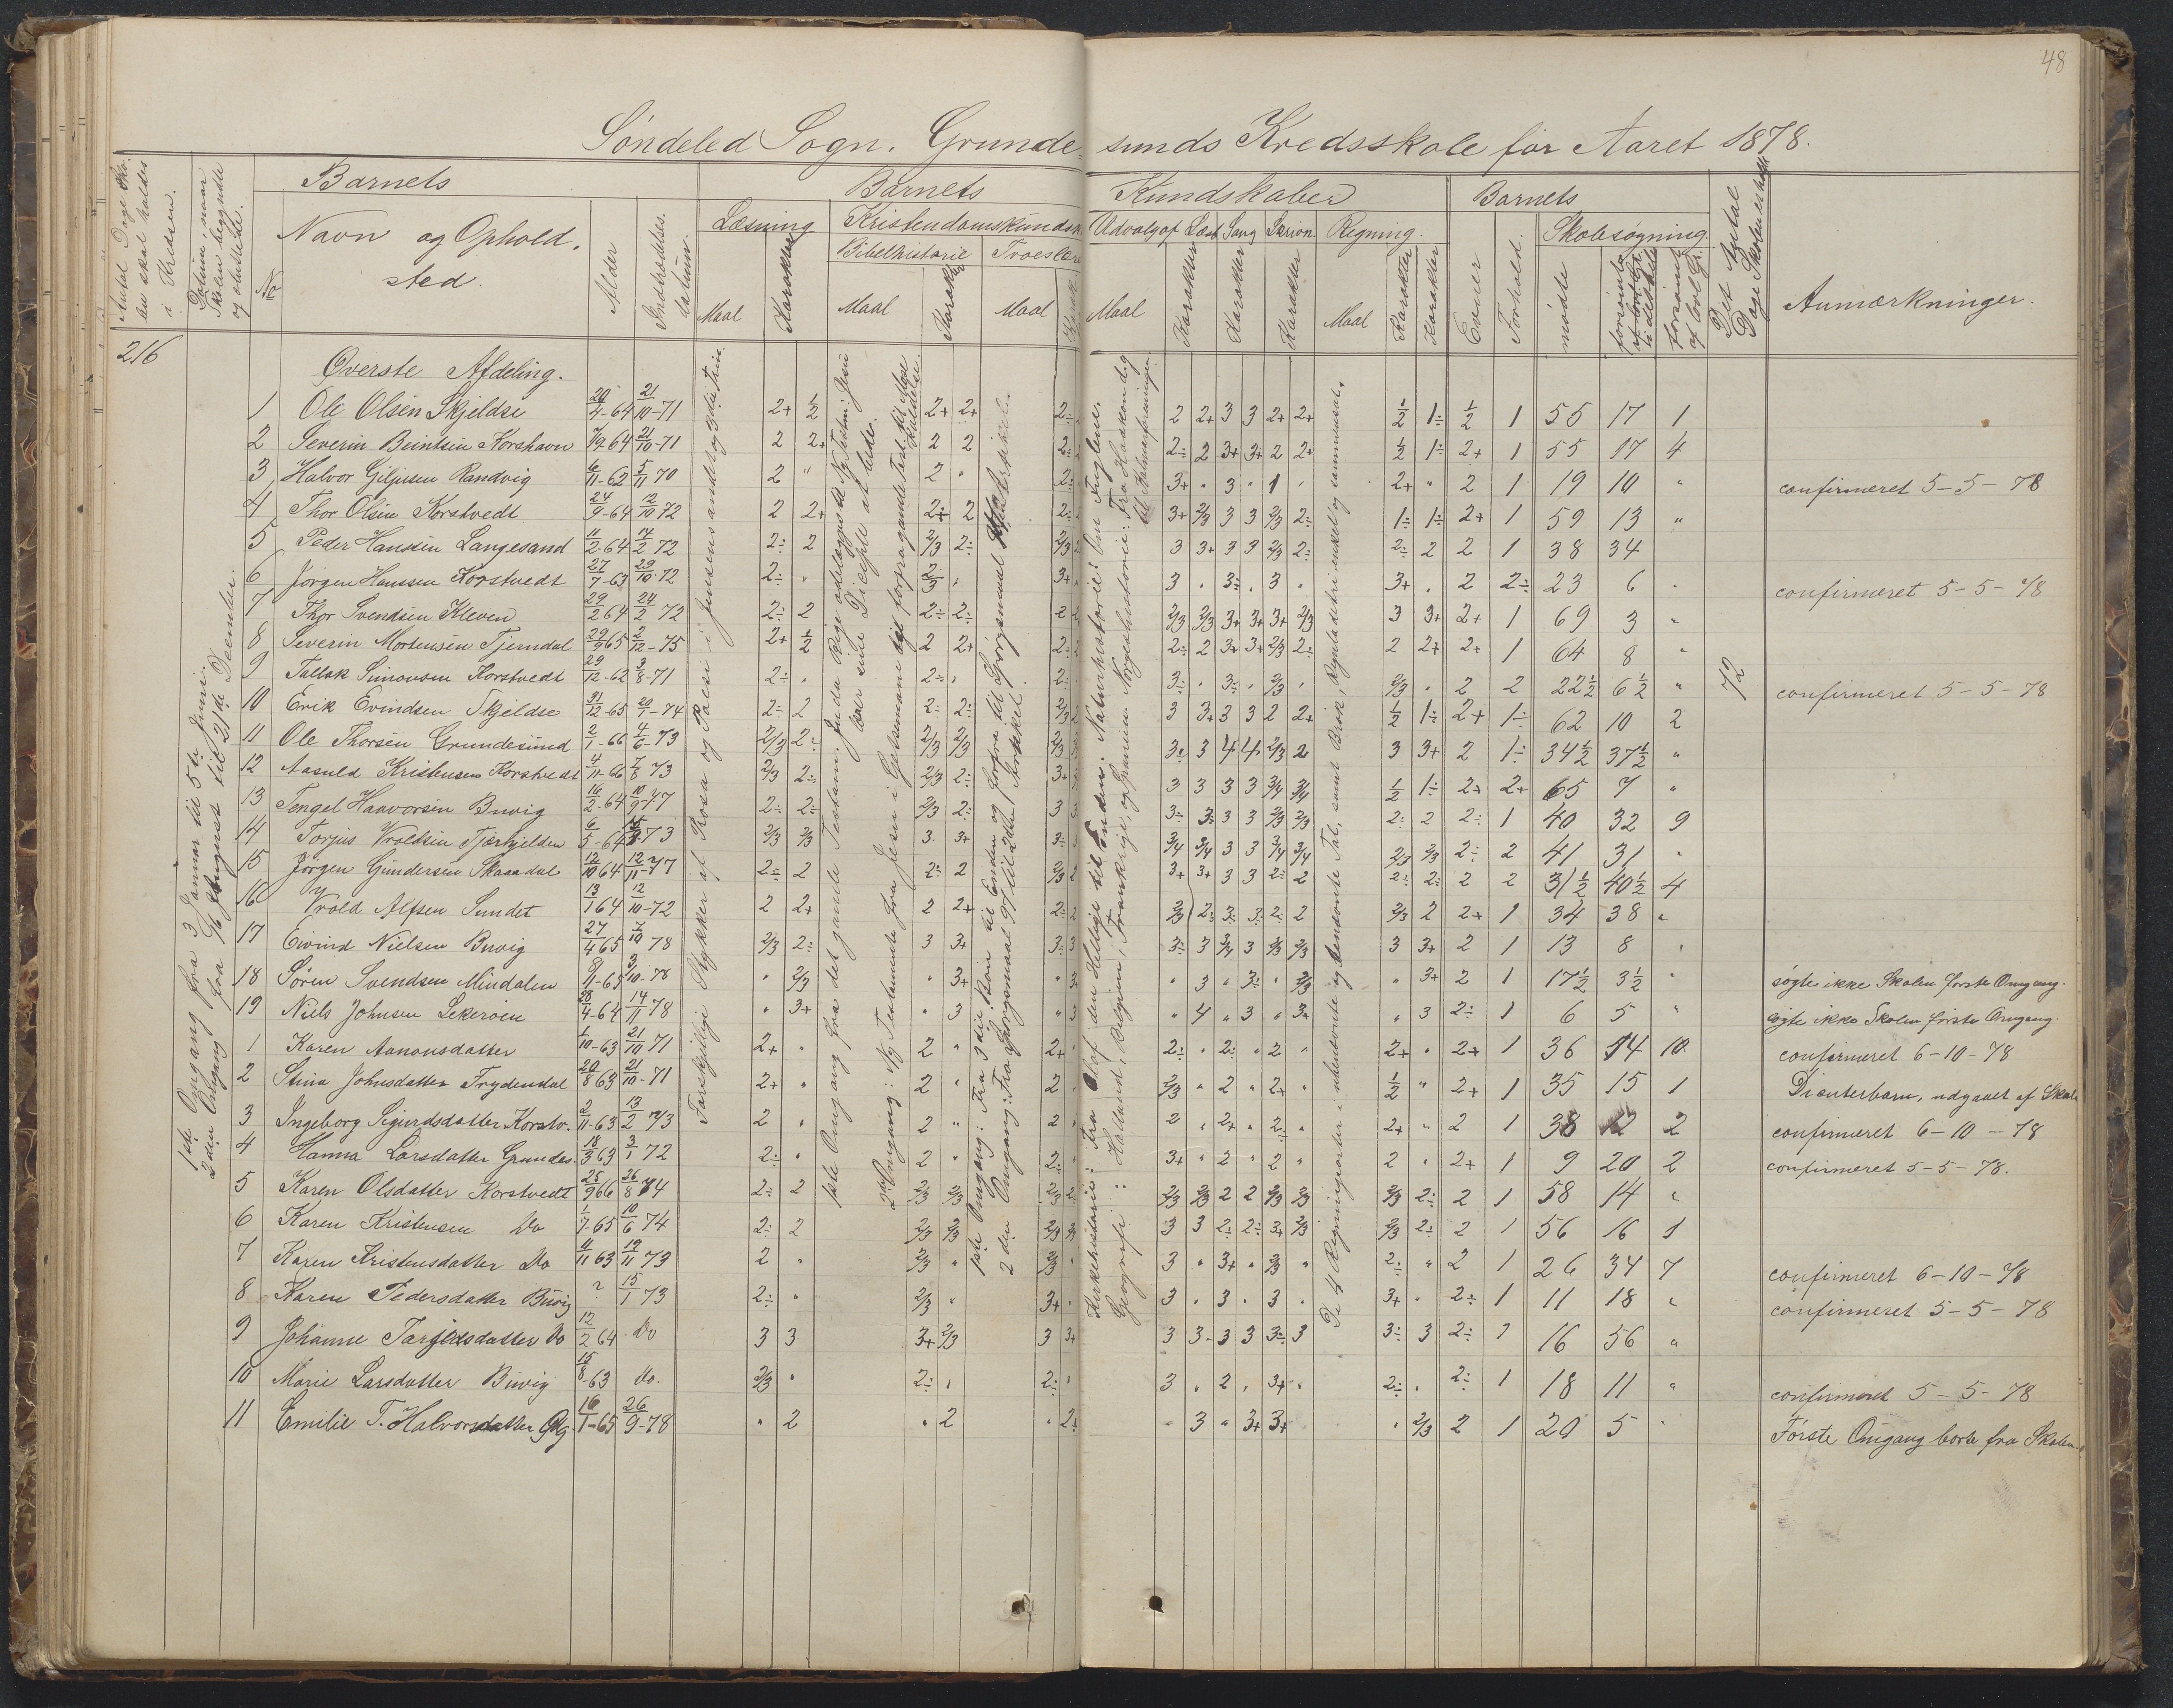 48
Söndeled Sogn. Grundesunds Kredsskole for Aaret 1878.
Antal Dage Skolen skal holdes i Kredsen.
Datum, naar Skolen begyndte og sluttede.
Barnets
No
Navn og Opholdsted.
Alder
Indtrædelses Datum.
Barnets Kundskaber
Læsning
Maal
Karakter
Kristendomskundsk.
Bibelhistorie
Maal
Karakter
Troeslære
Maal
Karak
Udvalg af Læseb.
Maal
Karakter
Sang
Karakter
Skrivn.
Karakter
Regning.
Maal
Karakter
Karakter
Barnets
Evner
Forhold.
Skolesøgning.
mødte
forsømte
forsømte af lovl. Gr.
Det Antal Dage Skolen er holdt
Anmærkninger.
216
1ste Omgang fra 3 Januar til 5te Juni.
2den Omgang fra 9/6 August til 21de December.
Forskjellige Stykker af Prosa og Poesi i Jensens anden og 3die Trin.
72
Øverste Afdeling.
1 Ole Olsen Skjeldse 20/4-64 21/10-71 2+ 1/2 2+ 2+ 2÷ 2 2+ 3 3 2+ 2+ 1/2 1÷ 1/2 1 55 17 1
2 Severin Beintsen Korshavn 7/9 64 21/10-71 2 2+ 2 2 2÷ 2÷ 2 3+ 3+ 2 2+ 1/2 1÷ 2+ 1 55 17 4
3 Halvor Giljusen Randvig 6/11-62 5/11 70 2 " 2 " 2÷ 3+ " 3 " 1 " 2+ " 2 1 19 10 " confirmeret 5-5-78
4 Thor Olsen Korstvedt 24/9-64 12/10 72 2 2+ 2÷ 2 2÷ 3+ 2/3 3 3 2/3 2÷ 1÷ 1÷ 2+ 1 59 13 "
5 Peder Hansen Langesand 11/2-64 14/2 72 2÷ 2 2/3 2÷ 2/3 3 3+ 3 3 2/3 2÷ 2÷ 2 2 1 38 34
6 Jörgen Hanssen Korstvedt 27/7-63 29/10-72 2÷ " 2/3 " 3+ 3 " 3÷ " 3 " 3+ " 2 2÷ 23 6 " confirmeret 5-5-78
7 Thor Svendsen Kleven 29/2 64 24/2 72 2÷ 2 2÷ 2÷ 2 2/3 2/3 3+ 3+ 3+ 2/3 3 3+ 2+ 1 69 3 "
8 Severin Mortensen Tjerndal 29/9 65 2/12-75 2+ 1/2 2 2+ 2÷ 2÷ 2 3+ 3+ 2/3 2÷ 2 2+ 2+ 1 64 8 "
9 Tallak Simonsen Korstvedt 29/12-62 3/8-71 2÷ " 2÷ " 2÷ 3÷ " 3÷ " 2/3 " 2/3 " 2 2 22½ 6½ " confirmeret 5-5-78
10 Erik Evindsen Skjeldse 31/12-65 20/1-74 2÷ 2 2÷ 2÷ 2/3 3 3+ 3 3 2 2+ 1/2 1÷ 2+ 1÷ 62 10 2
11 Ole Thorsen Grundesund 2/1-66 4/6-73 2/3 2÷ 2/3 2/3 2/3 3÷ 3 4 4 2/3 2 3 3+ 2 1÷ 34½ 37½ "
12 Aasuld Kristensen Korstvedt 4/11-66 7/8 73 2/3 2÷ 2/3 2÷ 3+ 3 3 3 3 3/4 3/4 1/2 1÷ 2+ 2+ 65 7 "
13 Tengel Haavorsen Buvig 16/2-64 10/9-77 2÷ 2÷ 2/3 2÷ 3 3÷ 3÷ 3 3 2/3 2/3 2÷ 2 2÷ 1 40 32 9
14 Torjus Vroldsen Tjørkjelden 6/5-64 73 2/3 2/3 3 3+ 3÷ 3/4 3/4 3 3 3/4 3/4 2/3 2/3 2÷ 2 41 31 "
15 Jörgen Gundersen Skaaadal 12/10 64 12/11-77 2÷ 2 2÷ 2 2/3 3+ 3+ 3 3 2÷ 2 2÷ 2÷ 2 2 31½ 40½ 4
16 Vrold Alfsen Sundet 13/1 64 12/10-72 2 2+ 2 2+ 2÷ 2/3 2÷ 3÷ 3÷ 2÷ 2 2/3 2 2+ 1 34 38 "
17 Eivind Nielsen Buvig 27/4 65 7/10 78 2/3 2÷ 3 3+ 3÷ 3÷ 3 3/4 3 2/3 2/3 3 3+ 2 1 13 8 "
18 Sören Svendsen Mindalen 8/11-65 3/10-78 " 2/3 " 3+ " " 3 " 3÷ " 2/3 " 3+ 2 1 17½ 3½ " søgte ikke Skolen første Omgang.
19 Niels Johnsen Lekeroen 28/4-64 14/11 78 " 3+ " 3 " " 4 " 3 " 3+ " 3 2÷ 1 6 5 " søgte ikke Skolen første Omgang.
1 Karen Aanonsdatter 1/10-63 21/10 71 2+ " 2 " 2+ 2÷ " 2÷ " 2 " 2+ " 2+ 1 36 14 10 confirmeret 6-10-78
2 Stina Johnsdatter Frydendal 20/8 63 21/10-71 2+ " 2 " 2 2/3 " 2 " 2+ " 1/2 " 2+ 1 35 15 1 Dienterbarn, udgaaet af Skol
3 Ingeborg Sigurdsdatter Korstv. 2/11-63 13/2 73 2 " 2 " 2 2 " 2+ " 2÷ " 2+ " 2 1 38 12 2 confirmeret 6-10-78
4 Hanna Larsdatter Grundes. 18/3 63 3/1 72 2÷ " 2 " 2÷ 3+ " 2 " 2 " 2 " 2+ 1 9 20 2 confirmeret 5-5-78.
5 Karen Olsdatter Korstvedt 25/9 66 26/8 74 2÷ 2 2/3 2/3 2/3 2/3 2/3 2 2 2/3 2/3 2/3 2÷ 2 1 58 14 "
6 Karen Kristensen Do 1/7-65 10/6 74 2÷ 2 2/3 2/3 2/3 3 3 2÷ 2÷ 3+ 2/3 2/3 2÷ 2 1 56 16 1
7 Karen Kristensdatter Do 4/11 63 19/11 73 2 " 2/3 " 2/3 3 " 3+ " 2/3 " 2÷ " 2 1 26 34 7 confirmeret 6-10-78
8 Karen Pedersdatter Buvig ? 15/1 73 2÷ " 2/3 " 3+ 3 " 3 " 3 " 3+ " 2÷ 1 11 18 " confirmeret 5-5-78
9 Johanne Tarjeisdatter Do 12/2 64 Do 3 3 3+ 2/3 3 3+ 3 3- 3 3 3÷ 3 3÷ 3 2÷ 1 16 56 "
10 Marie Larsdatter Buvig 15/8-63 do. 2/3 " 2÷ " 2÷ 3 " 2 " 3+ " 2÷ " 2÷ 1 18 11 " confirmeret 5-5-78
11 Emilie T. Halvorsdatter 16/1-65 26/9-78 " 2 " 2 " 2÷ " 3 " 3+ 3+ " 2/3 2 1 20 5 " Første Omgang borte fra Skolen.